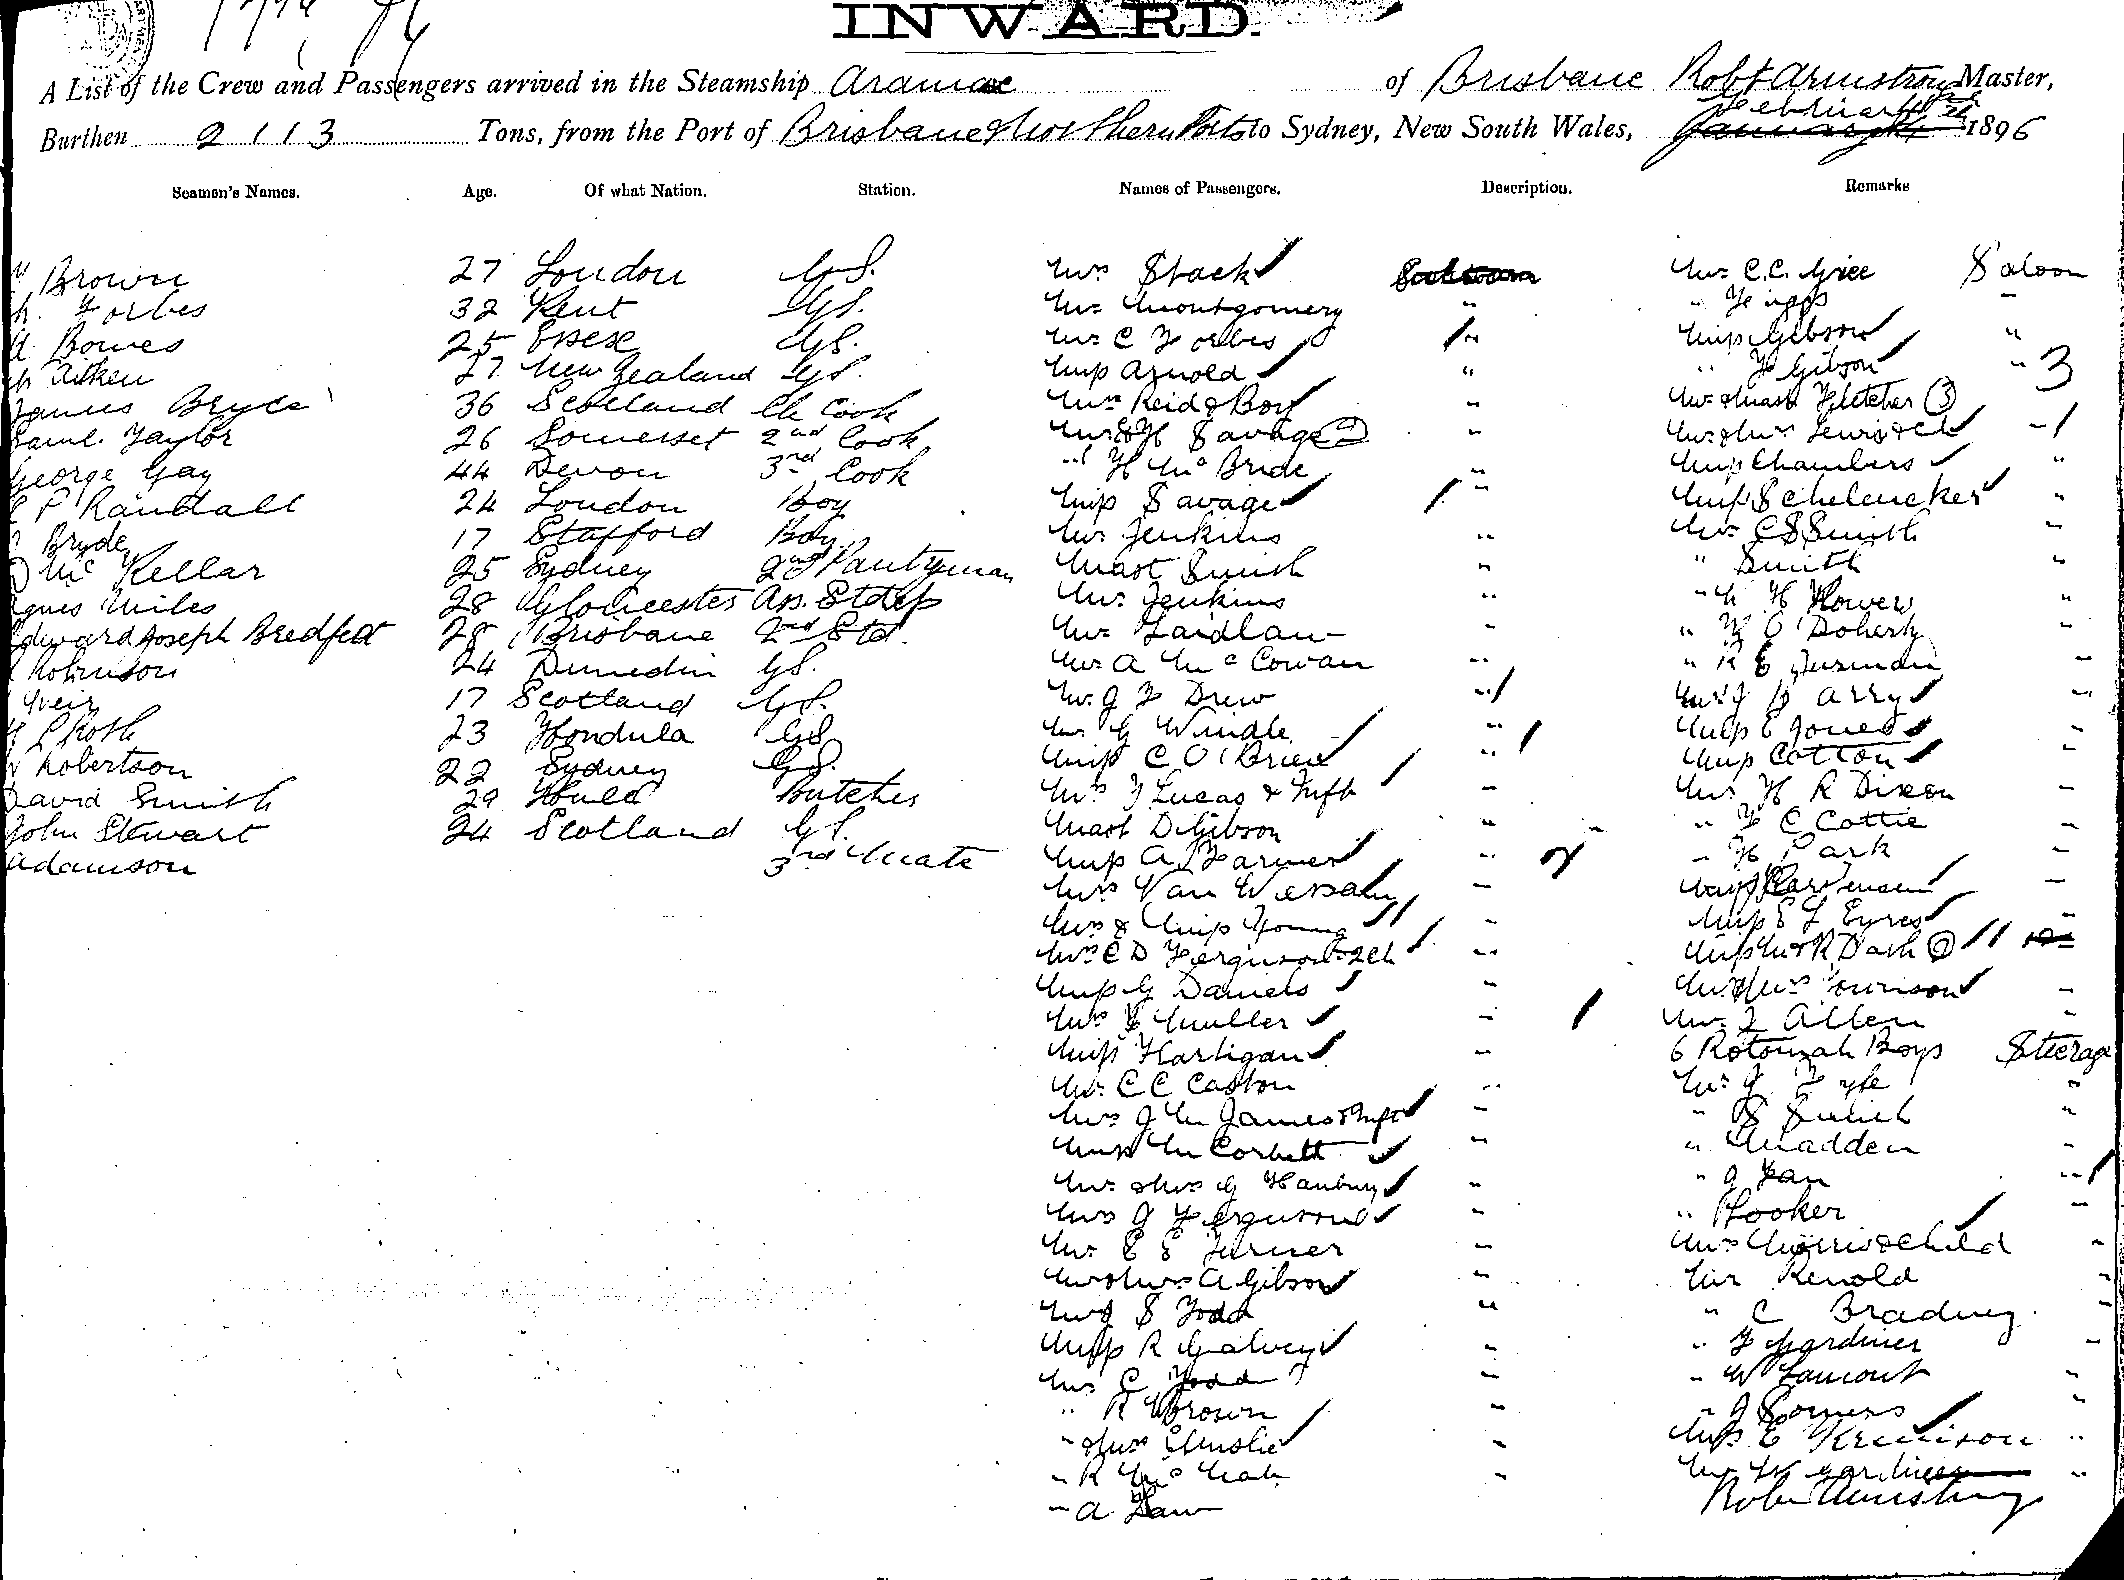 INWARD.
A List of the Crew and Passengers arrived in the Steamship Aramac of Brisbane Robt Armstrong Master,
Burthen 2113 Tons, from the Port of Brisbane & Northern Ports to Sydney, New South Wales, February 1896
Seamen's Names. Age. Of what Nation. Station. Names of Passengers. Description. Remarks
Brown 27 London G.S. Mrs Stack Saloon Mr C.C. Grice Saloon
Forbes 32 Kent G.S. Mr Montgomery " " Higgs "
Bowes 25 Essex G.S. Mr C Forbes " Miss Gibson "
Aitken 27 New Zealand G.S. Miss Arnold " " F Gibson " 3
James Bryce 36 Scotland Ch Cook Mrs Reid & Boy " Mr & Mast Fletcher (3)
Saml. Taylor 26 Somerset 2nd Cook Savage (2) " - 1
George Gay 44 Devon 3rd Cook " H McBride " Miss Chambers "
P Randall 24 London Boy Miss Savage " Miss "
Bryde 17 Stafford Boy Mr Jenkins " Mr C S Smith "
McKellar 25 Sydney 2nd Pantryman Mast Smith " " Smith "
Agnes Miles 28 Gloucester Ass. Stdess Mr Jenkins " "
Edward Joseph Bredfelt 28 Brisbane 2nd Std. Mr Laidlaw " " Doherty "
Robinson 24 Dunedin G.S. Mr A McCowan " " R E "
Weir 17 Scotland G.S. Mr J F Drew " "
Roth 23 G.S. Mr G Windle " Miss E Jones "
Robertson 22 Sydney G.S. Miss C O'Brien " Miss Cotton "
David Smith 29 Hull Butcher Mrs J Lucas & Inft " Mr H R Dixon "
John Stewart 24 Scotland G.S. Mast D Gibson " " F C Cottie "
Adamson 3rd Mate Miss A Farmer " " H Park "
Mrs Van " Miss "
Mrs & Miss Young " Miss E L Eyres "
Mrs C D Ferguson 2 ch " Miss M & R Dash (2)
Miss G Daniels " Mr & Mrs "
Mrs E Muller " Mr J Allen
Miss Hartigan " 6 Rotomah Boys Steerage
Mr C C Caston " Mr J Fyfe "
Mrs J M James & Inft " " S "
Miss M Corbett " " Madden "
Mr & Mrs G Hanbury " " J Fan "
Mrs J Ferguson " " Hooker "
Mr E E Turner " Mrs Morris & Child "
Mr & Mrs A Gibson " Mr Renold "
S Todd " " C "
Miss R Galvey " " F Gardiner "
Mrs C Todd " " W Lamont "
" R Brown " " J Somers "
" & Mrs Ainslie " Miss E "
" R " Mr W Gardiner "
" A Law Robt Armstrong